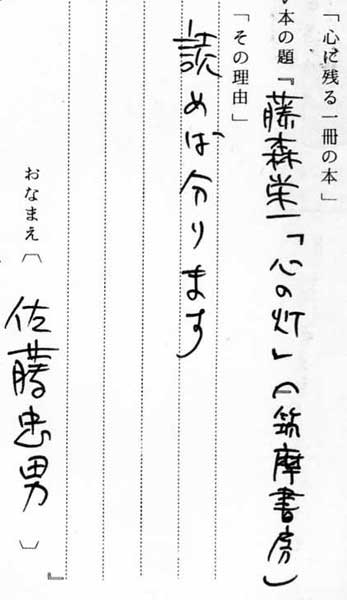 「心に残る一冊の本」
本の題『藤森栄一「心の灯」(筑摩書房)
「その理由」
読めば分ります
おなまえ〔佐藤忠男〕